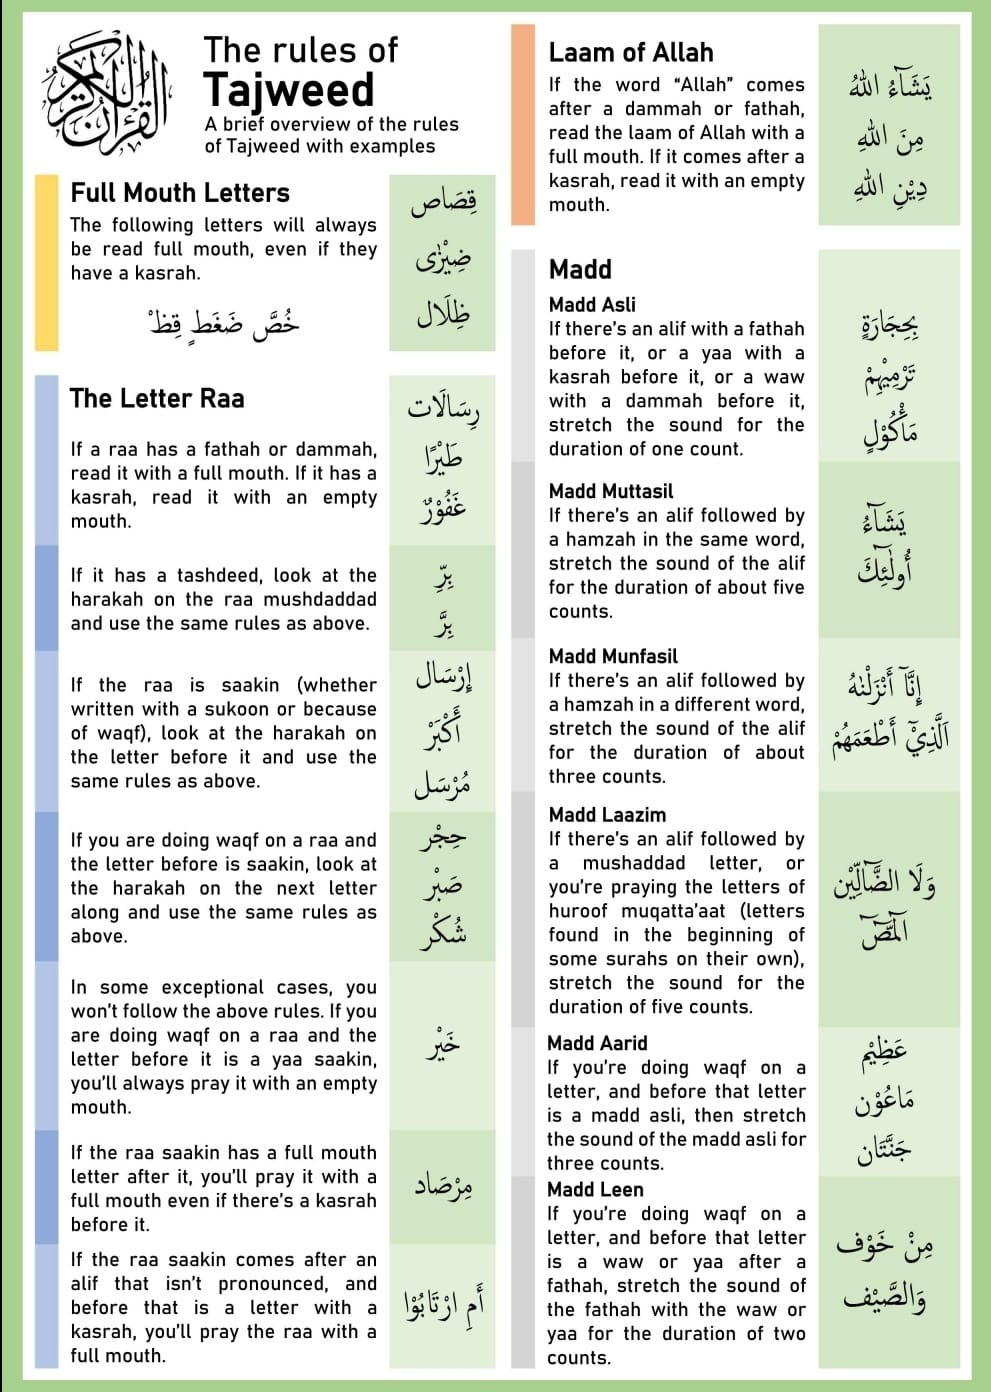 القرآن الكريم
The rules of
Tajweed
A brief overview of the rules
of Tajweed with examples
Full Mouth Letters
The following letters will always
be read full mouth, even if they
have a kasrah.
خُصَّ ضَغَطٍ قِظْ
قِصَاص
ضِيْزٰى
ظِلَال
The Letter Raa
If a raa has a fathah or dammah,
read it with a full mouth. If it has a
kasrah, read it with an empty
mouth.
رِسَالَات
طَيْرًا
غَفُوْرٌ
If it has a tashdeed, look at the
harakah on the raa mushdaddad
and use the same rules as above.
بِرِّ
بِرَّ
If the raa is saakin (whether
written with a sukoon or because
of waqf), look at the harakah on
the letter before it and use the
same rules as above.
إِرْسَال
أَكْبَرْ
مُرْسَل
If you are doing waqf on a raa and
the letter before is saakin, look at
the harakah on the next letter
along and use the same rules as
above.
حِجْر
صَبْر
شُكْر
In some exceptional cases, you
won't follow the above rules. If you
are doing waqf on a raa and the
letter before it is a yaa saakin,
you'll always pray it with an empty
mouth.
خَيْر
If the raa saakin has a full mouth
letter after it, you'll pray it with a
full mouth even if there's a kasrah
before it.
مِرْصَاد
If the raa saakin comes after an
alif that isn't pronounced, and
before that is a letter with a
kasrah, you'll pray the raa with a
full mouth.
أَمِ ارْتَابُوْا
Laam of Allah
If the word “Allah” comes
after a dammah or fathah,
read the laam of Allah with a
full mouth. If it comes after a
kasrah, read it with an empty
mouth.
يَشَآءُ اللهُ
مِنَ اللهِ
دِيْنِ اللهِ
Madd
Madd Asli
If there's an alif with a fathah
before it, or a yaa with a
kasrah before it, or a waw
with a dammah before it,
stretch the sound for the
duration of one count.
بِحِجَارَةٍ
تَرْمِيْهِمْ
مَأْكُوْلٍ
Madd Muttasil
If there's an alif followed by
a hamzah in the same word,
stretch the sound of the alif
for the duration of about five
counts.
يَشَآءُ
أُولٰٓئِكَ
Madd Munfasil
If there's an alif followed by
a hamzah in a different word,
stretch the sound of the alif
for the duration of about
three counts.
إِنَّآ أَنْزَلْنٰهُ
اَلَّذِيْٓ أَطْعَمَهُمْ
Madd Laazim
If there's an alif followed by
a mushaddad letter, or
you're praying the letters of
huroof muqatta'aat (letters
found in the beginning of
some surahs on their own),
stretch the sound for the
duration of five counts.
وَلَا الضَّآلِّيْن
الٓمّٓصٓ
Madd Aarid
If you're doing waqf on a
letter, and before that letter
is a madd asli, then stretch
the sound of the madd asli for
three counts.
عَظِيْم
مَاعُوْن
جَنَّتَان
Madd Leen
If you're doing waqf on a
letter, and before that letter
is a waw or yaa after a
fathah, stretch the sound of
the fathah with the waw or
yaa for the duration of two
counts.
مِنْ خَوْف
وَالصَّيْف